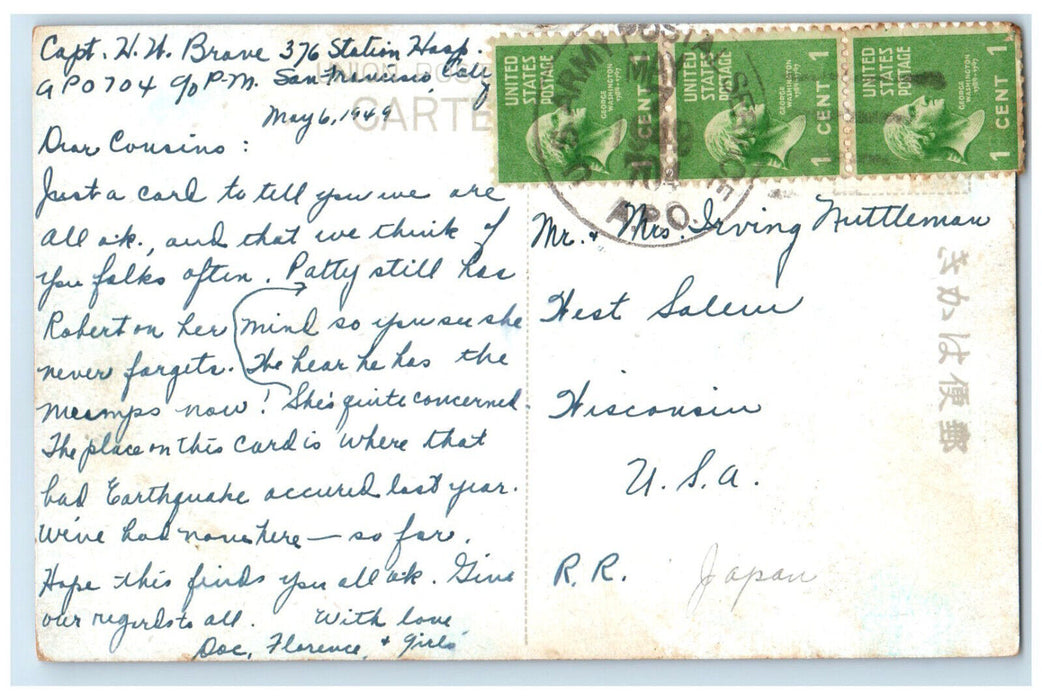 Capt. W. W. Brave 376 Station Hosp.
APO 704 c/o P.M. San Francisco, Calif
May 6, 1949
UNION POST
CARTE
Dear Cousins:
Just a card to tell you we are
all o.k., and that we think of
you folks often. Patty still has
Robert on her mind so you see she
never forgets. We hear he has the
meamps now! She's quite concerned.
The place on this card is where that
bad Earthquake accured last year.
We've had none here — so far.
Hope this finds you all o.k. Give
our regards to all. With love
Doc, Florence, & Girls
UNITED STATES POSTAGE
GEORGE WASHINGTON
1789-1797
1 CENT 1
UNITED STATES POSTAGE
GEORGE WASHINGTON
1789-1797
1 CENT 1
UNITED STATES POSTAGE
GEORGE WASHINGTON
1789-1797
1 CENT 1
U.S. ARMY POSTAL SERVICE
MAY
7
19
A.P.O.
Mr. & Mrs. Irving Nuttleman
West Salem
Wisconsin
U.S.A.
R.R.
Japan
きかは便郵